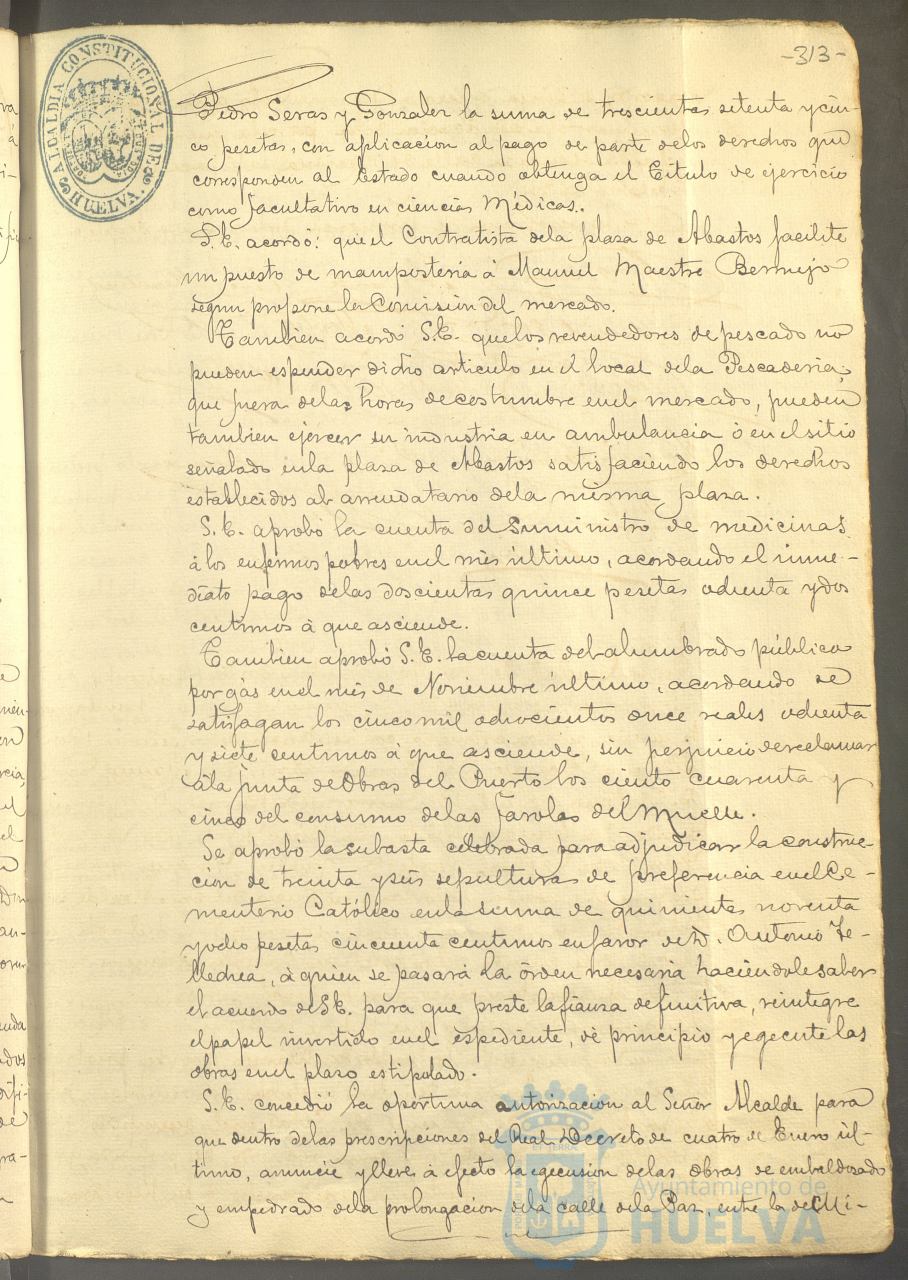 -313-
ALCALDIA CONSTITUCIONAL DE HUELVA
Pedro Seras y Gonzalez la suma de trescientas setenta y cin-
co pesetas, con aplicacion al pago de parte delos derechos que
corresponden al Estado cuando obtenga el Titulo de ejercicio
como facultativo en ciencias Médicas.
S.E. acordó: que el Contratista dela plaza de Abastos facilite
un puesto de mamposteria á Manuel Maestre Bermejo
segun propone la Comision del mercado.
Tambien acordó S.E. quelos revendedores de pescado no
pueden espender dicho articulo en el local dela Pescaderia,
que fuera delas horas decostumbre enel mercado, pueden
tambien ejercer su industria en ambulancia ó en el sitio
señalado enla plaza de Abastos satisfaciendo los derechos
establecidos al arrendatario dela misma plaza.
S.E. aprobó la cuenta del suministro de medicinas
á los enfermos pobres enel mes último, acordando el inme-
diato pago delas doscientas quince pesetas ochenta y dos
centimos á que asciende.
Tambien aprobó S.E. la cuenta del alumbrado público
por gás enel mes de Noviembre último, acordando se
satisfagan los cinco mil ochocientos once reales ochenta
y siete centimos á que asciende, sin perjuicio dereclamar
ála junta deObras del Puerto los ciento cuarenta y
cinco del consumo delas farolas del Muelle.
Se aprobó la subasta celebrada para adjudicar la construc-
cion de treinta y seis sepulturas de preferencia enel Ce-
menterio Católico enla suma de quinientas noventa
y ocho pesetas cincuenta centimos en favor de D. Antonio Te-
llechea, á quien se pasará la órden necesaria haciéndole saber
el acuerdo de S.E. para que preste la fianza definitiva, reintegre
el papel invertido enel espediente, dé principio y egecute las
obras enel plazo estipulado.
S.E. concedió la oportuna autorizacion al Señor Alcalde para
que dentro delas prescripciones del Real Decreto de cuatro de Enero úl-
timo, anuncie y lleve á efecto la egecusion delas obras de embaldosado
y empedrado dela prolongacion dela calle dela Paz, entre la de Mi-
Ayuntamiento de
HUELVA